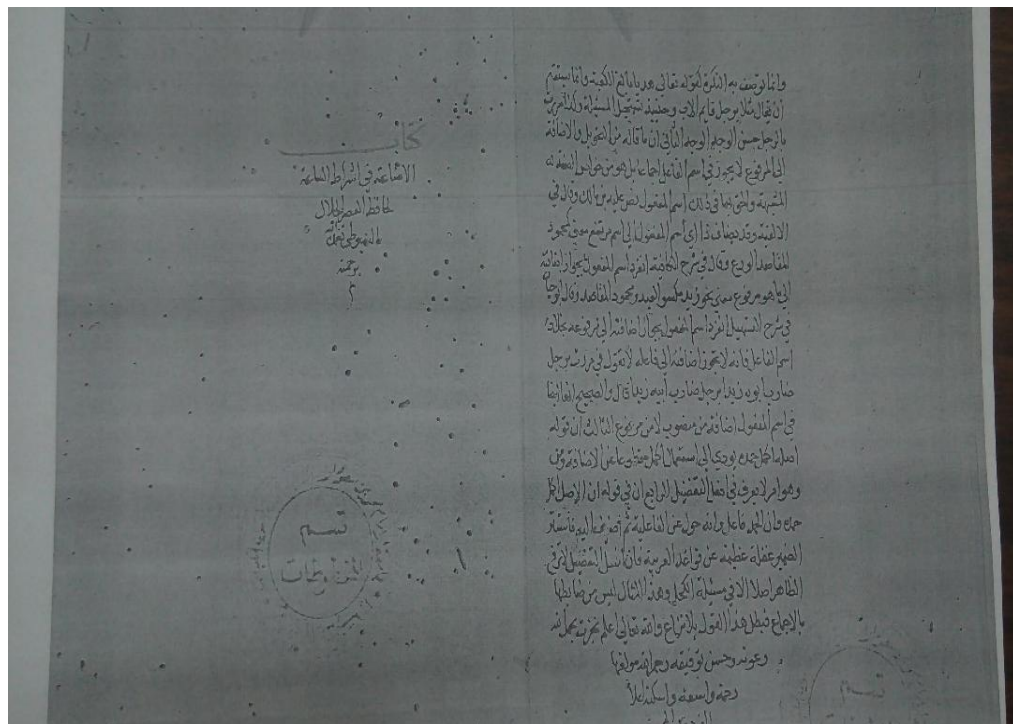 وانما توصف به النكرة لقوله تعالى هديا بالغ الكعبة وانما يستقيم
ان يقال مثلا برجل قايم الاب وحينئذ المسئلة
برجل حسن الوجه الوجه الثاني ان ما قاله من التحويل والاضافة
الى المرفوع لا يجوز في اسم الفاعل اجماعا بل هو من خواص الصفة
المشبهة والحق بها في ذلك اسم المفعول نص عليه بن مالك وقال في
الالفية وقد يضاف ذا اي اسم المفعول الى اسم مرتفع معنى كمحمود
المقاصد الورع وقال في شرح الكافية انفرد اسم المفعول بجواز اضافته
الى ما هو مرفوع معنى نحو زيد مكسو العبد ومحمود المقاصد وقال
في شرح التسهيل انفرد اسم المفعول بجواز اضافته الى مرفوعه بخلاف
اسم الفاعل فانه لا يجوز اضافته الى فاعله لا تقول في مررت برجل
ضارب ابوه زيدا برجل ضارب ابيه زيدا قال والصحيح
في اسم المفعول اضافة من منصوب لا من مرفوع الثالث ان قوله
اصلها اكمل حمده يودي الى استعمال اكمل عن الاضافة ومن
وهو امر لا يعرف في افعل التفضيل الرابع ان في قوله ان الاصل اكمل
حمده وان الحمد فاعل وانه حول عن الفاعلية ثم اضيف اليه
الضمير غفلة عظيمة عن قواعد العربية فان افعل التفضيل لا يرفع
الظاهر اصلا الا في مسئلة الكحل وهذا المثال ليس من ضابطها
بالاجماع فبطل هذا القول والله تعالى اعلم بحمد الله
وعونه وحسن توفيقه ورحم الله مولفها
رحمة واسعة واسكنه اعلا
كتاب
الاشاعة في اشراط الساعة
لحافظ العصر الجلال
السيوطي تغمده
برحمته
م
قسم
المخطوطات
قسم